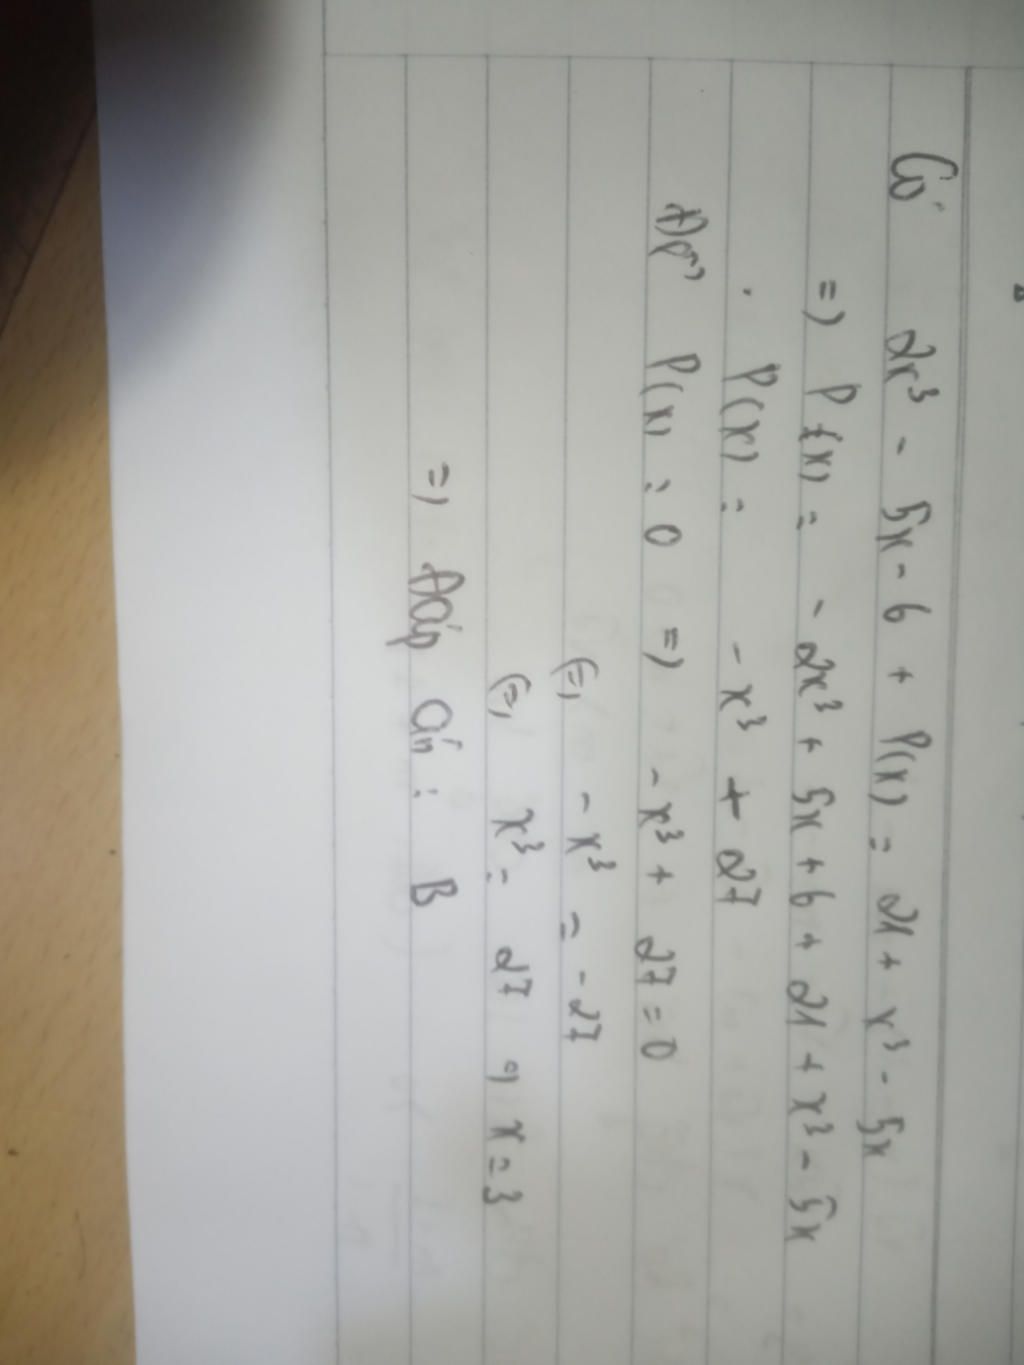 Có 2x³ - 5x - 6 + P(x) = 21 + x³ - 5x
=) P(x) = - 2x³ + 5x + 6 + 21 + x³ - 5x
P(x) = - x³ + 27
Để P(x) = 0 =) - x³ + 27 = 0
(=) - x³ = - 27
(=) x³ = 27 =) x = 3
=) Đáp án : B